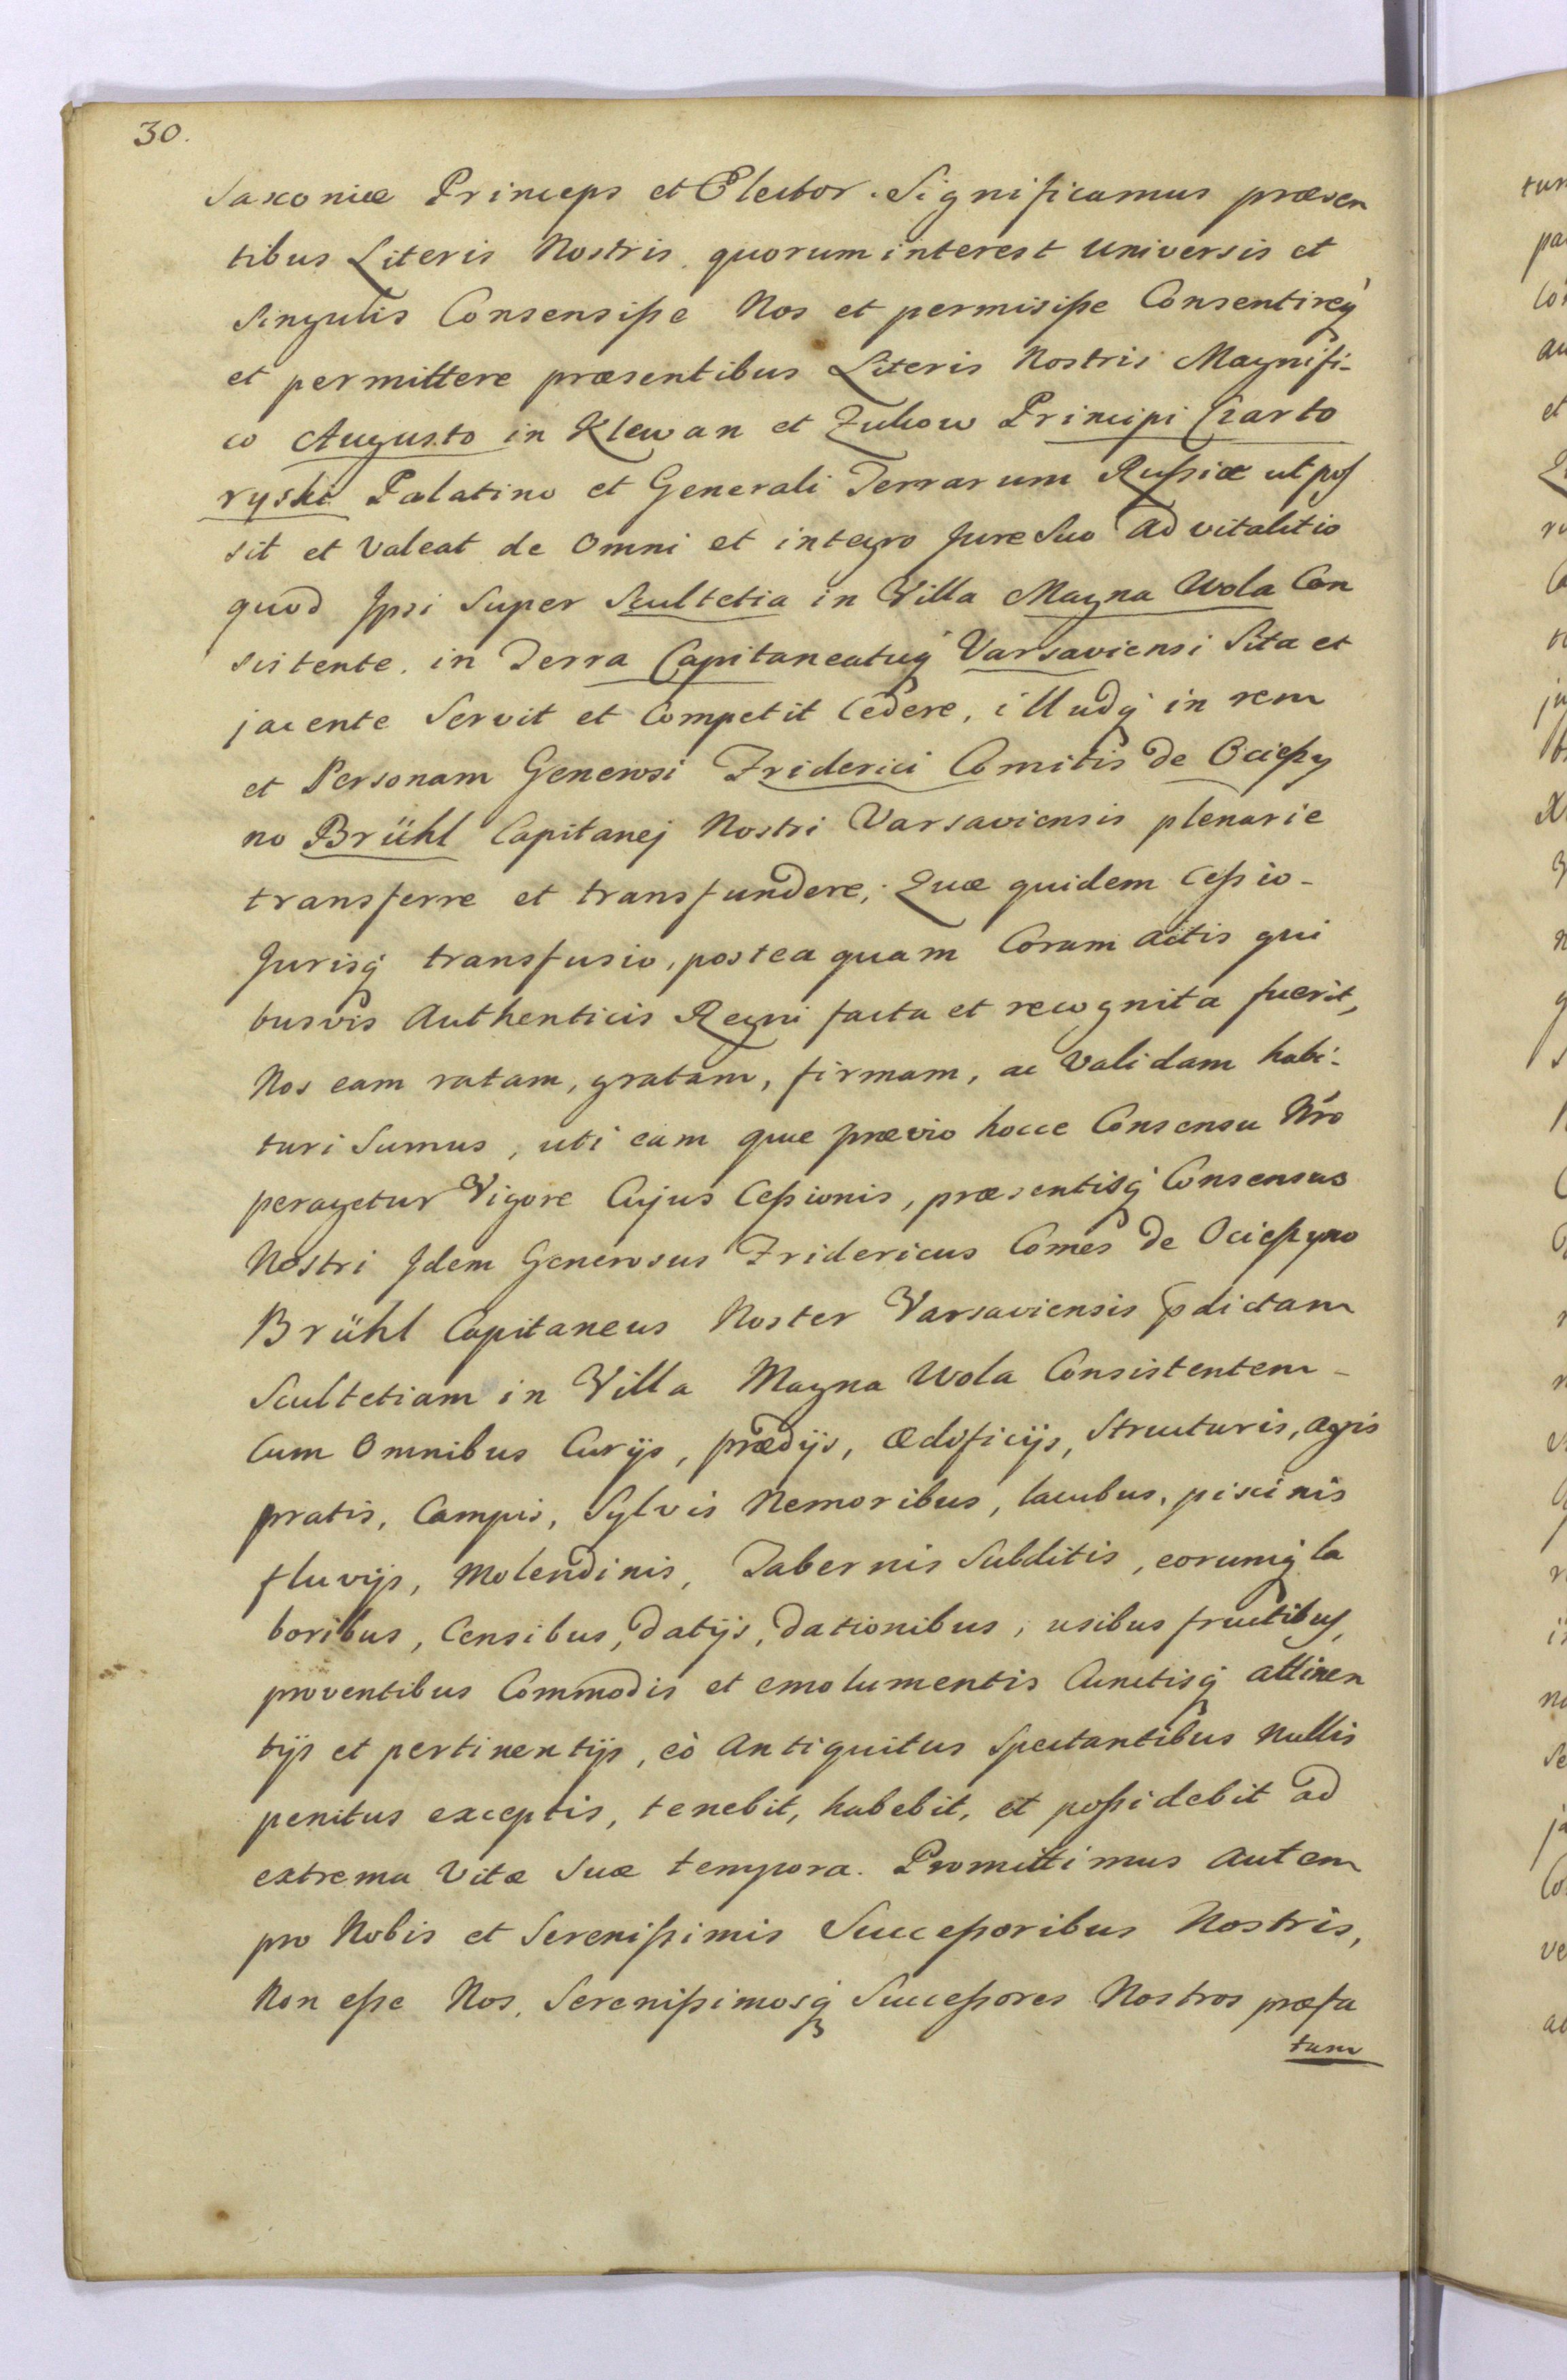 30.
Saxoniæ Princeps et Elector. Significamus præsen
tibus Literis Nostris quorum interest Universis et
Singulis Consensiße Nos et permisiße Consentireq́
et permittere præsentibus Literis Nostris Magnifi-
co Augusto in Klewan et Zukow Principi Czarto
ryski Palatino et Generali Terrarum Rußiæ ut pos
sit et valeat de Omni et integro Jure Suo advitalitio
quod Ipsi Super Scultetia in Villa Magna Wola Con
sistente. in Terra Capitaneatuq́ Varsaviensi Sita et
jacente Servit et Competit Cedere, illudq́ in rem
et Personam Generosi Friderici Comitis de Ocieszy
no Brühl Capitanej Nostri Varsaviensis plenarie
transferre et transfundere; Quæ quidem Ceßio-
Jurisq́ transfusio, postea quam Coram actis qui
busvis Authenticis Regni facta et recognita fuerit,
Nos eam ratam, gratam, firmam, ac validam habi-
turi Sumus, uti eam quæ prævio hocce Consensu Nro
peragetur Vigore Cujus Ceßionis, præsentisq́ Consensus
Nostri Idem Generosus Fridericus Comes de Ocieszyno
Brühl Capitaneus Noster Varsaviensis pdictam
Scultetiam in Villa Magna Wola Consistentem-
Cum Omnibus Curijs, prædijs, ædificijs, Structuris, agris
pratis, Campis, Sylvis Nemoribus, lacubus, piscinis
fluvijs, Molendinis, Tabernis Subditis, eorumq́ la
boribus, Censibus, datijs, dationibus, usibus fructibus,
proventibus Commodis et emolumentis Cunctisq́ attinen
tijs et pertinentijs, eò Antiquitus Spectantibus Nullis
penitus exceptis, tenebit, habebit, et poßidebit ad
extrema Vitæ Suæ tempora. Promittimus autem
pro Nobis et Serenißimis Succeßoribus Nostris,
Non eße Nos, Serenißimosq́ Succeßores Nostros præfa
tum